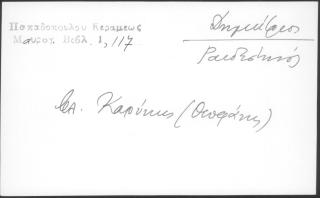 Παπαδοπουλου Κεραμεως
Μαυρογ. Βιβλ. 1, 117
Δημήτριος
Ραιδεστηνός
Βλ. Καρύκης (Θεοφάνης)